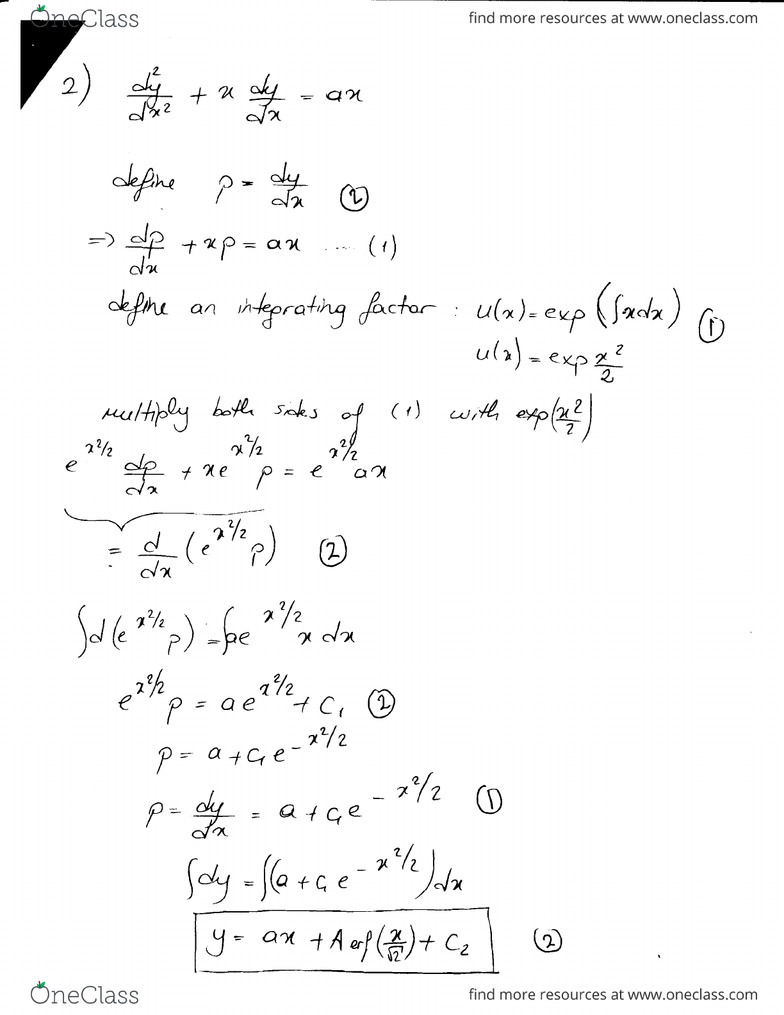 OneClass
find more resources at www.oneclass.com
2) d²y/dx² + x dy/dx = ax
define p = dy/dx ②
=> dp/dx + xp = ax .... (1)
define an integrating factor : u(x) = exp (∫xdx) ①
u(x) = exp x²/2
multiply both sides of (1) with exp(x²/2)
e^(x²/2) dp/dx + xe^(x²/2) p = e^(x²/2) ax
= d/dx (e^(x²/2) p) ②
∫d(e^(x²/2) p) = ∫ae^(x²/2) x dx
e^(x²/2) p = ae^(x²/2) + C₁ ②
p = a + C₁e^(-x²/2)
p = dy/dx = a + C₁e^(-x²/2) ①
∫dy = ∫(a + C₁e^(-x²/2))dx
y = ax + A erf(x/√2) + C₂ ②
OneClass
find more resources at www.oneclass.com